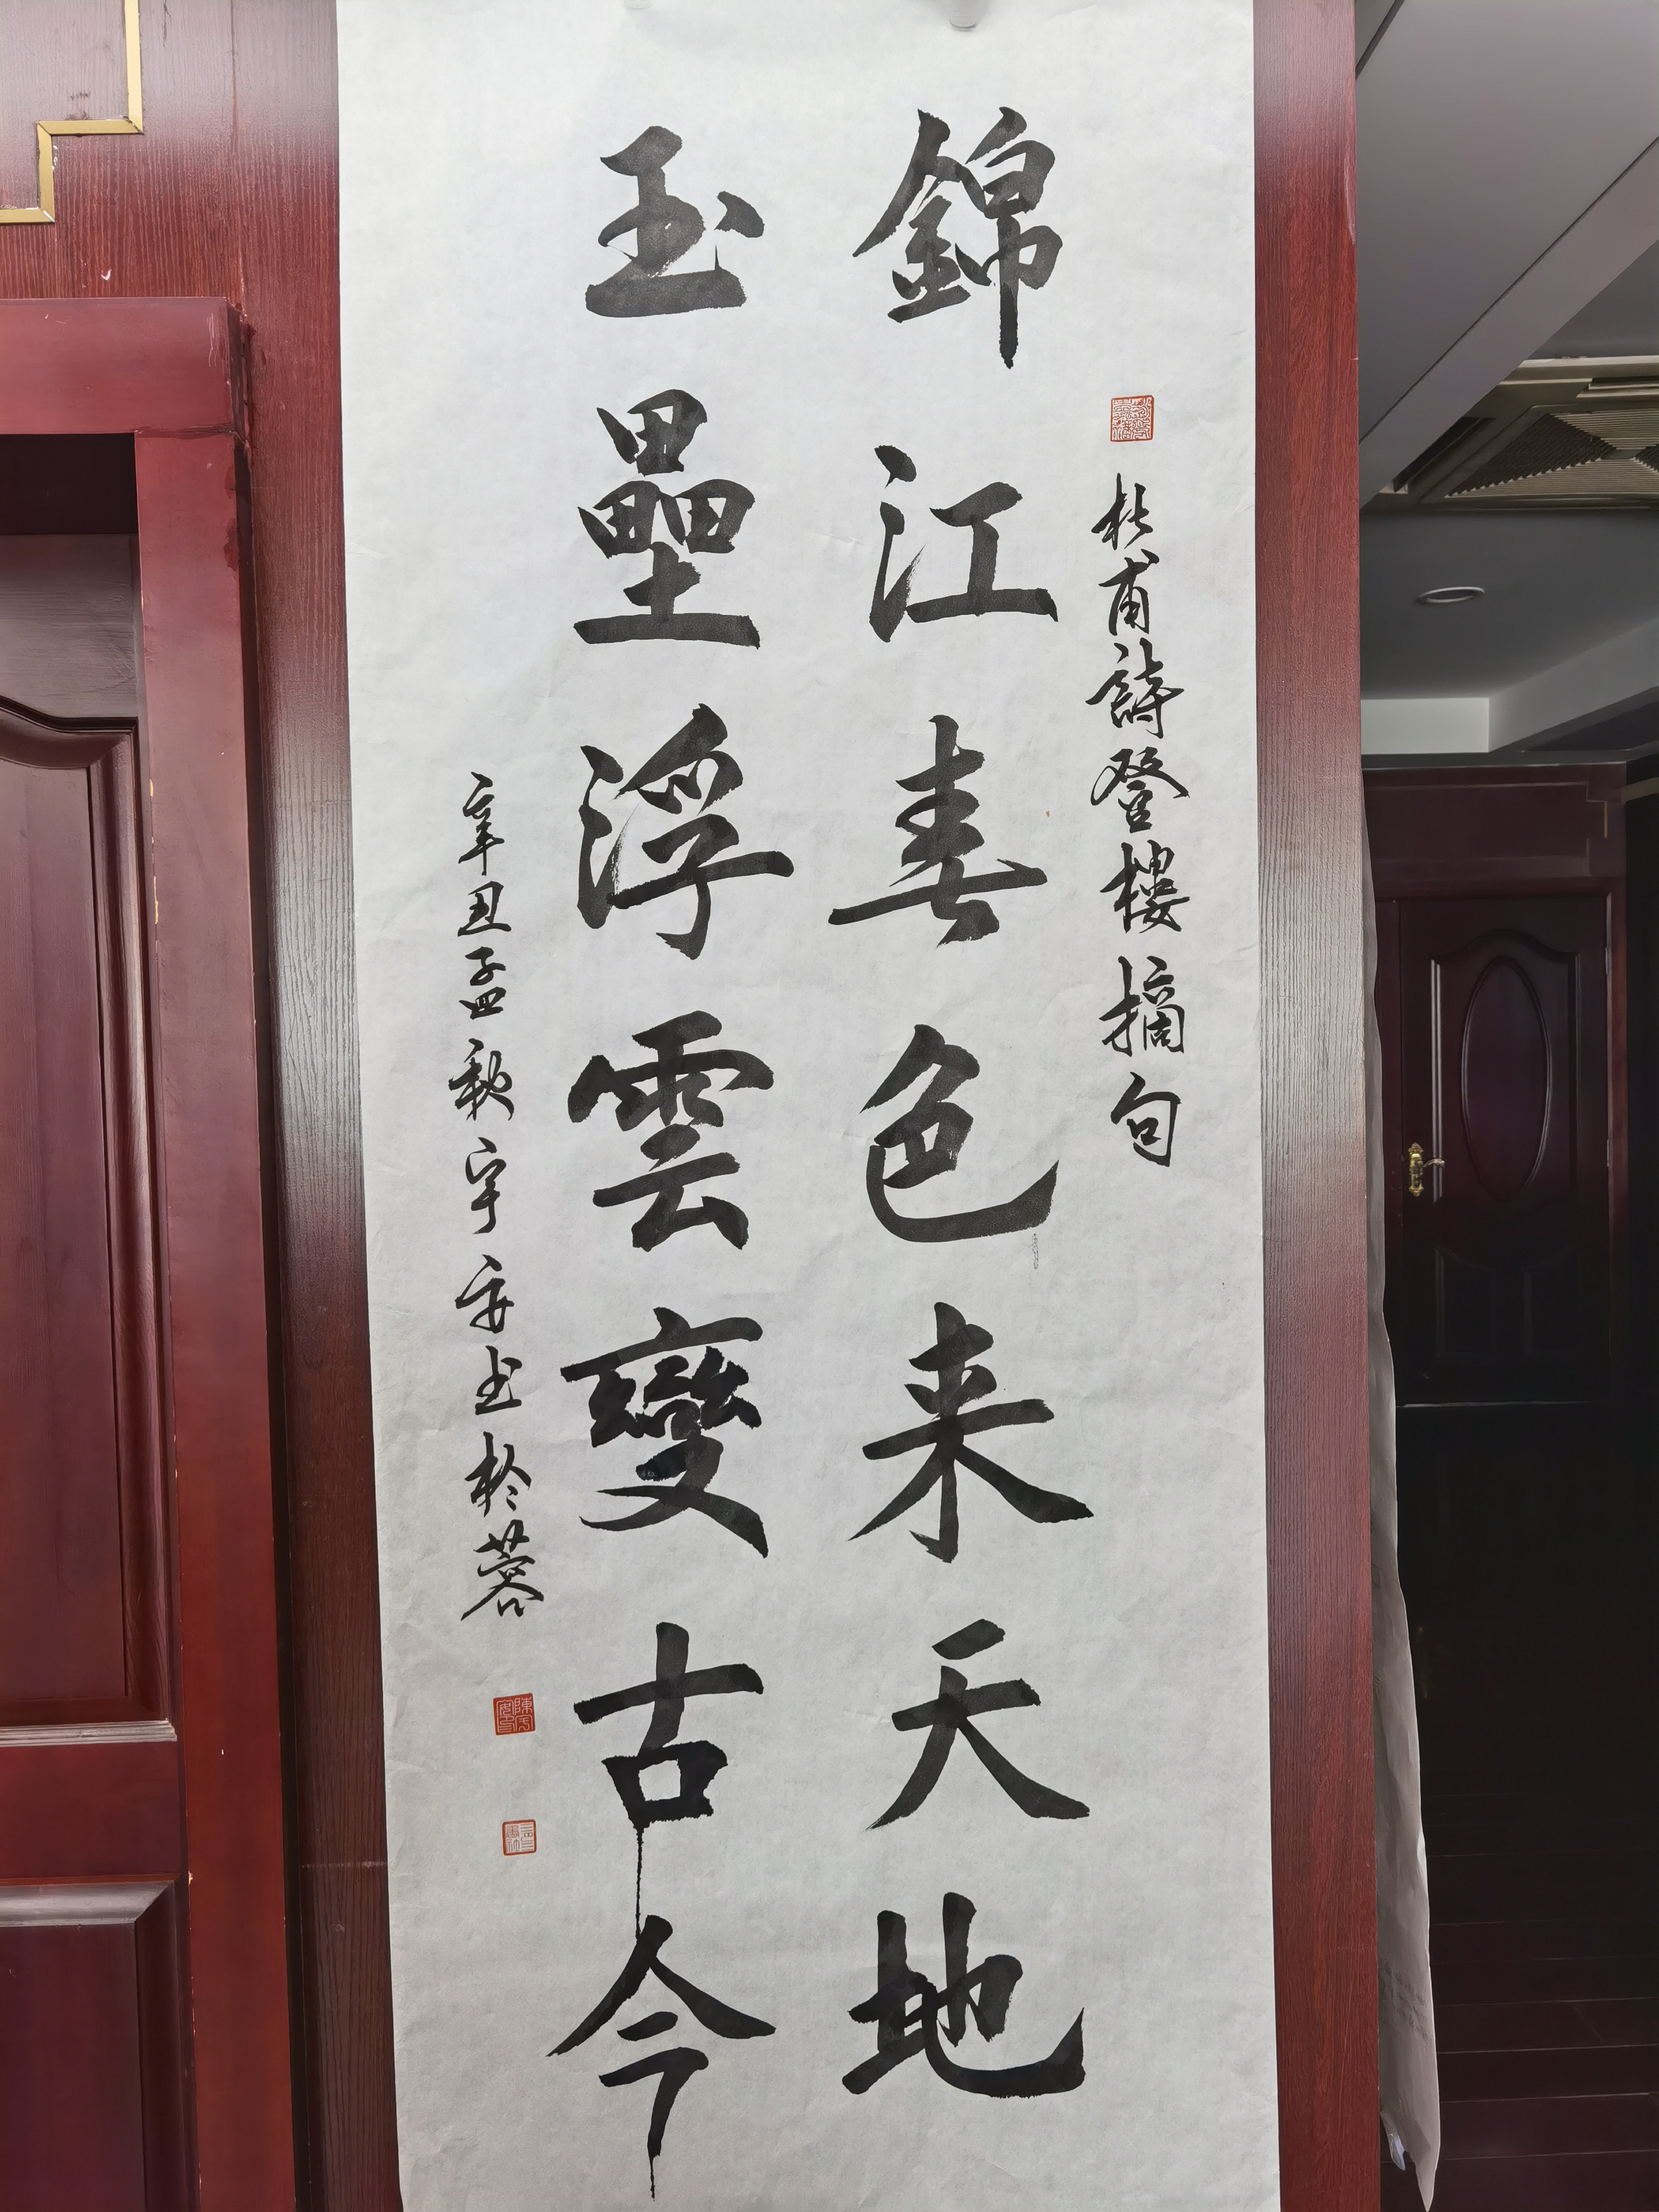 杜甫詩登樓摘句
錦江春色来天地
玉壘浮雲變古今
辛丑孟秋宇安书於蓉